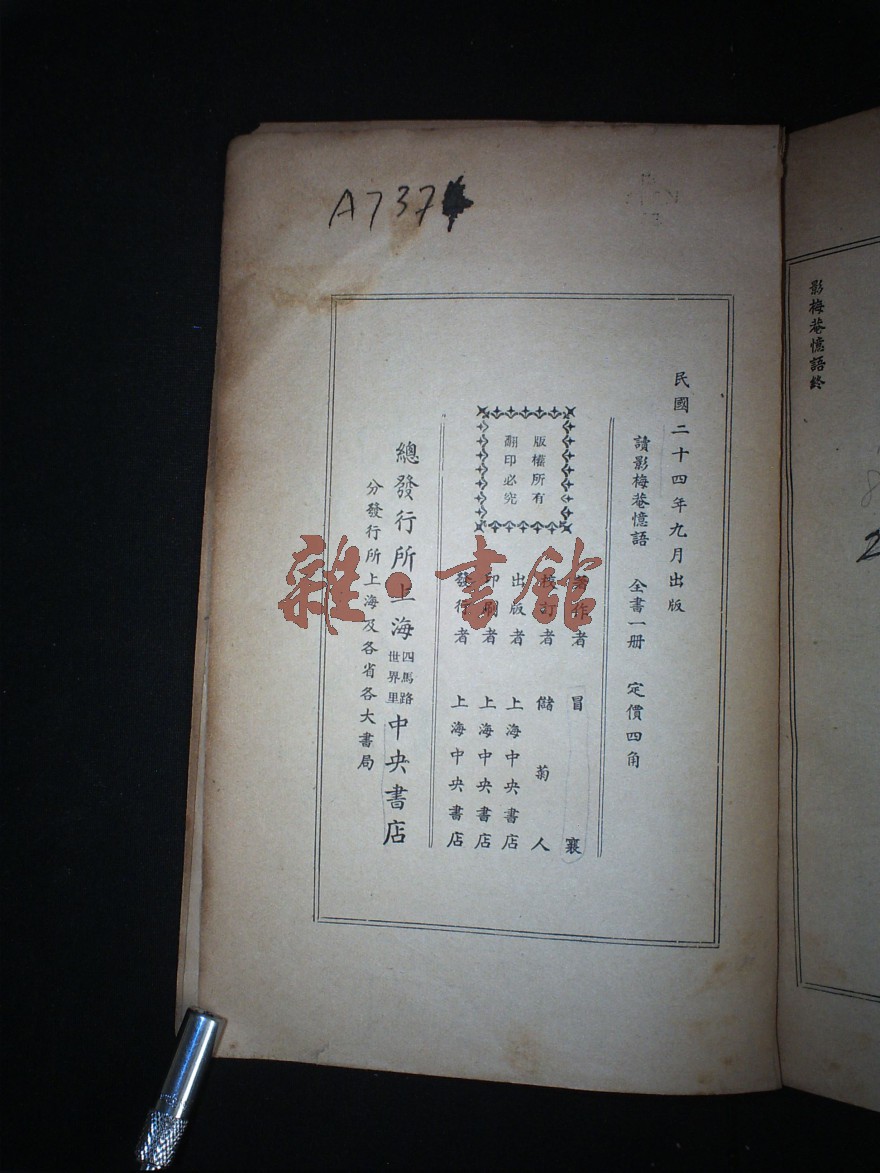 A737
影梅菴憶語終
民國二十四年九月出版
讀影梅菴憶語　全書一册　定價四角
版權所有
翻印必究
著作者　冒襄
校訂者　儲菊人
出版者　上海中央書店
印刷者　上海中央書店
發行者　上海中央書店
總發行所上海四馬路世界里中央書店
分發行所上海及各省各大書局
雜·書館
2